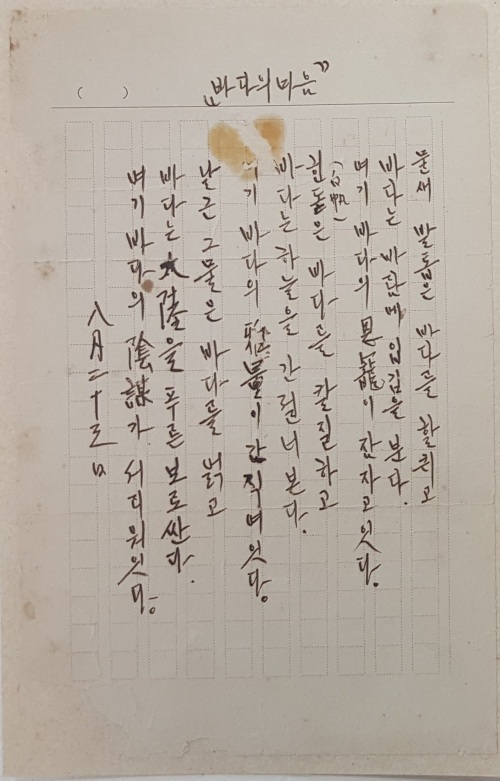 ( ) „바다의 마음”
물새 발톱은 바다를 할퀴고
바다는 바람에 입김을 분다.
여기 바다의 恩寵이 잠자고잇다.
힌돛은(白帆) 바다를 칼질하고
바다는 하늘을 간질너본다.
기 바다의 雅量이 간직여잇다.
날근 그물은 바다를 얽고
바다는 大陸을 푸른 보로 싼다.
여기 바다의 陰謀가 서리워잇다.
八月二十三日